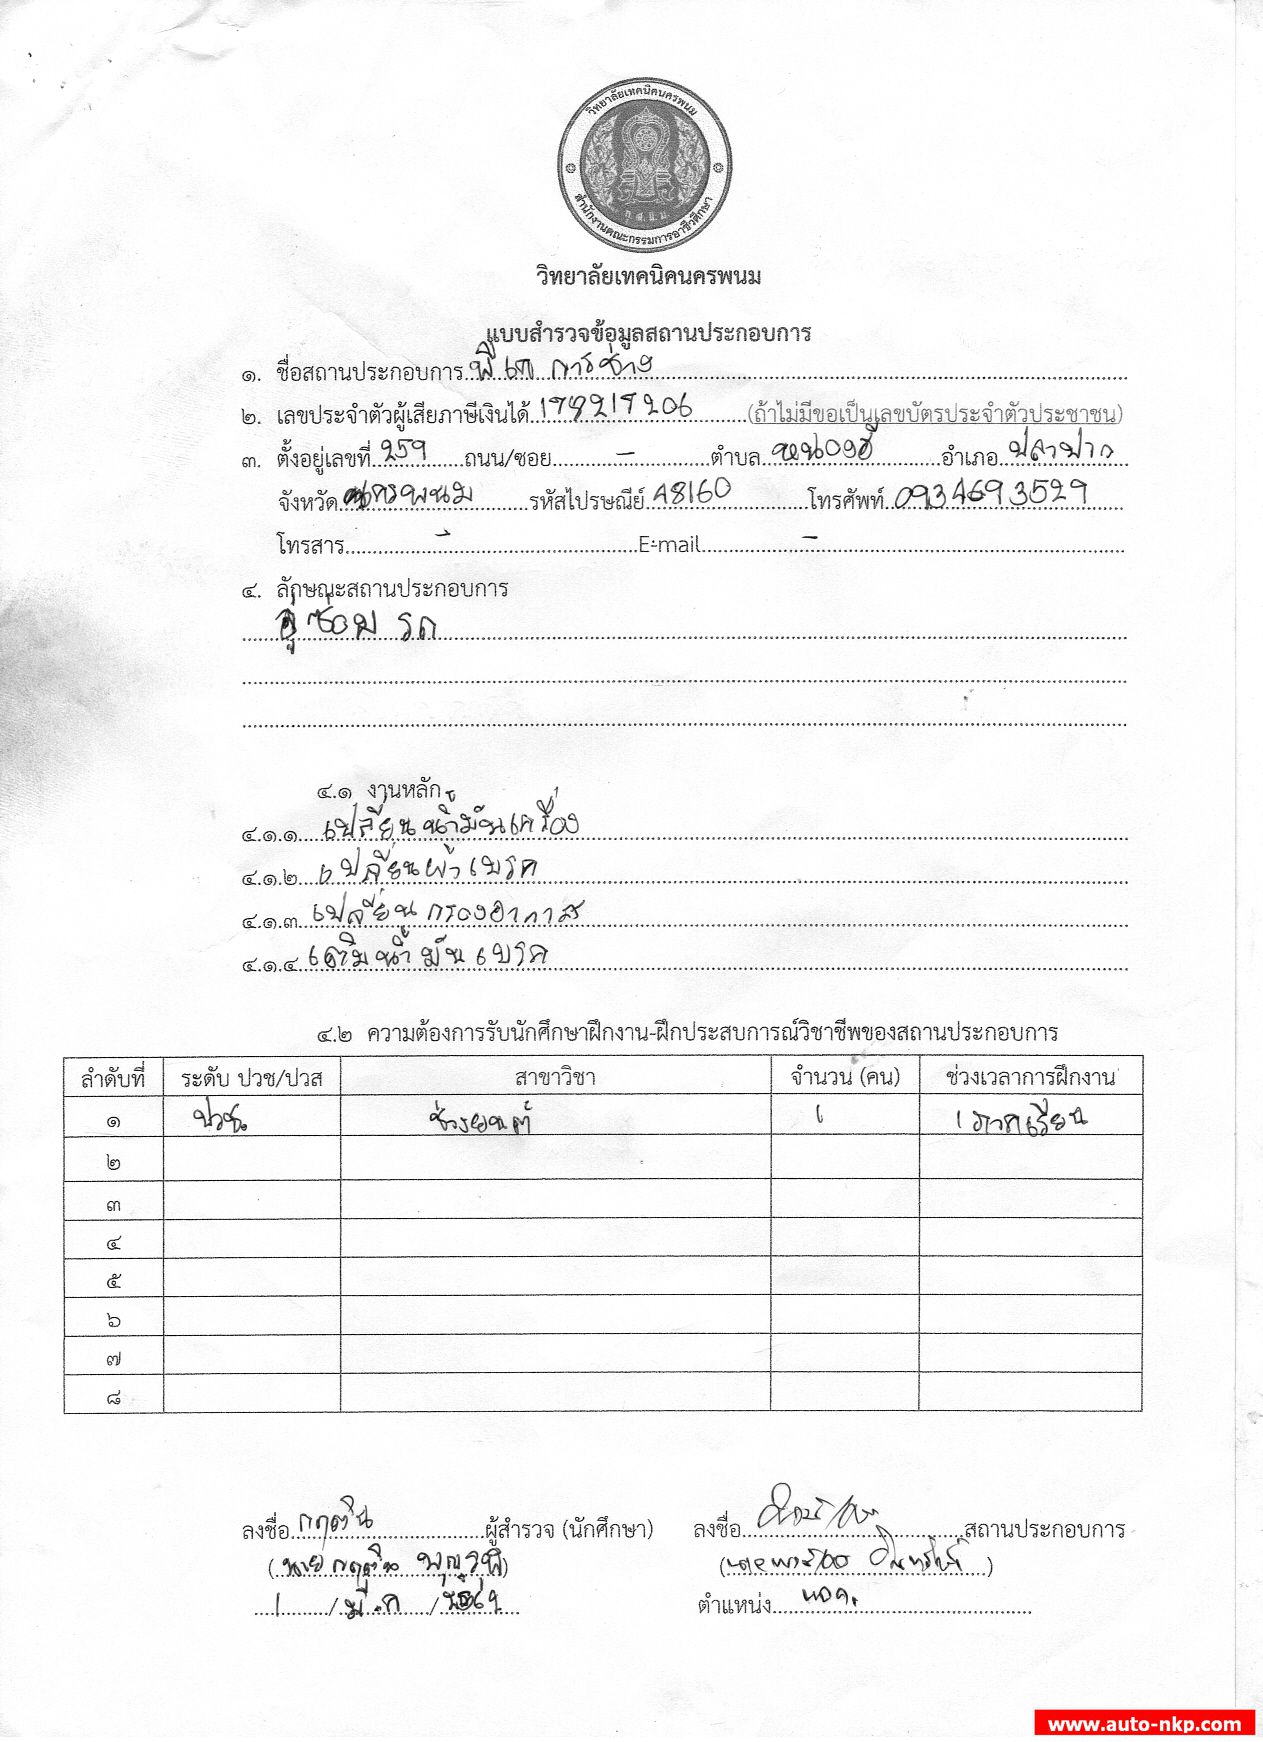 วิทยาลัยเทคนิคนครพนม
สำนักงานคณะกรรมการอาชีวศึกษา
วิทยาลัยเทคนิคนครพนม
แบบสำรวจข้อมูลสถานประกอบการ
๑. ชื่อสถานประกอบการ การช่าง
๒. เลขประจำตัวผู้เสียภาษีเงินได้ (ถ้าไม่มีขอเป็นเลขบัตรประจำตัวประชาชน)
๓. ตั้งอยู่เลขที่ 259 ถนน/ซอย - ตำบล หนองฮี อำเภอ ปลาปาก
จังหวัด นครพนม รหัสไปรษณีย์ 48160 โทรศัพท์ 0934693529
โทรสาร - E-mail -
๔. ลักษณะสถานประกอบการ
อู่ซ่อม รถ
๔.๑ งานหลัก
๔.๑.๑ เปลี่ยนน้ำมันเครื่อง
๔.๑.๒ เปลี่ยนผ้าเบรค
๔.๑.๓ เปลี่ยนกรองอากาส
๔.๑.๔ เติมน้ำมันเบรค
๔.๒ ความต้องการรับนักศึกษาฝึกงาน-ฝึกประสบการณ์วิชาชีพของสถานประกอบการ
ลำดับที่ ระดับ ปวช/ปวส สาขาวิชา จำนวน (คน) ช่วงเวลาการฝึกงาน
๑ ปวช. ช่างยนต์ 1 1 ภาคเรียน
๒
๓
๔
๕
๖
๗
๘
ลงชื่อ กฤติน ผู้สำรวจ (นักศึกษา) ลงชื่อ สถานประกอบการ
(นายกฤติน )
1 / มี.ค / ตำแหน่ง
www.auto-nkp.com